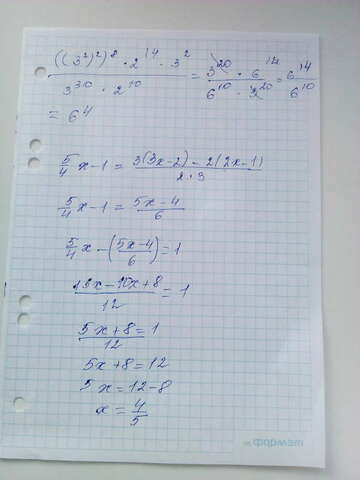 ((3²)²)⁸ · 2¹⁴ · 3² / 3³⁰ · 2¹⁰ = 3²⁰ · 6¹⁴ / 6¹⁰ · 3²⁰ = 6¹⁴ / 6¹⁰
= 6⁴
5/4 x - 1 = 3(3x-2) - 2(2x-1) / 2·3
5/4 x - 1 = 5x-4 / 6
5/4 x - (5x-4 / 6) = 1
15x - 10x + 8 / 12 = 1
5x + 8 / 12 = 1
5x + 8 = 12
5x = 12 - 8
x = 4/5